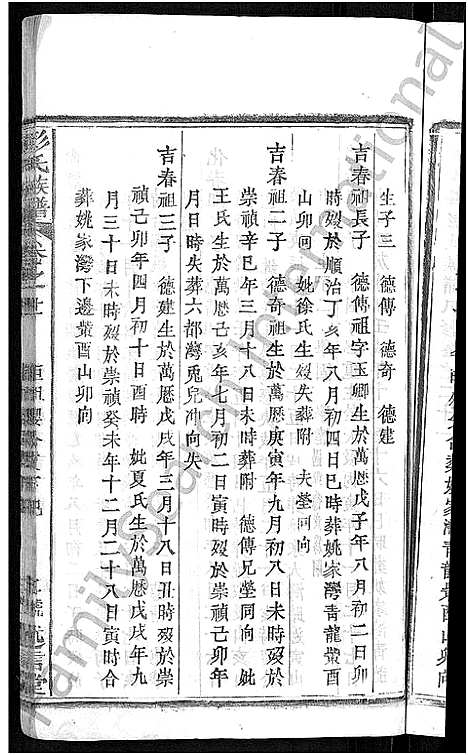 生子三 德傳 德奇 德建
吉春祖長子 德傳祖字玉卿生於萬厯戊子年八月初二日卯
時歿於順治丁亥年八月初四日巳時葬姚家灣青龍嘴酉
山卯向 妣徐氏生歿失葬附 夫塋同向
吉春祖二子 德奇祖生於萬厯庚寅年九月初八日未時歿於
崇禎辛巳年三月十八日未時葬附 德傳兄塋同向 妣
王氏生於萬厯己亥年七月初二日寅時歿於崇禎己卯年
月日時失葬六都灣兎兒冲向失
吉春祖三子 德建生於萬厯戊戌年三月十八日丑時歿於崇
禎己卯年四月初十日酉時 妣夏氏生於萬厯戊戌年九
月三十日未時歿於崇禎癸未年十二月二十八日寅時合
葬姚家灣下邊嘴酉山卯向
彭氏族譜
familysearch International